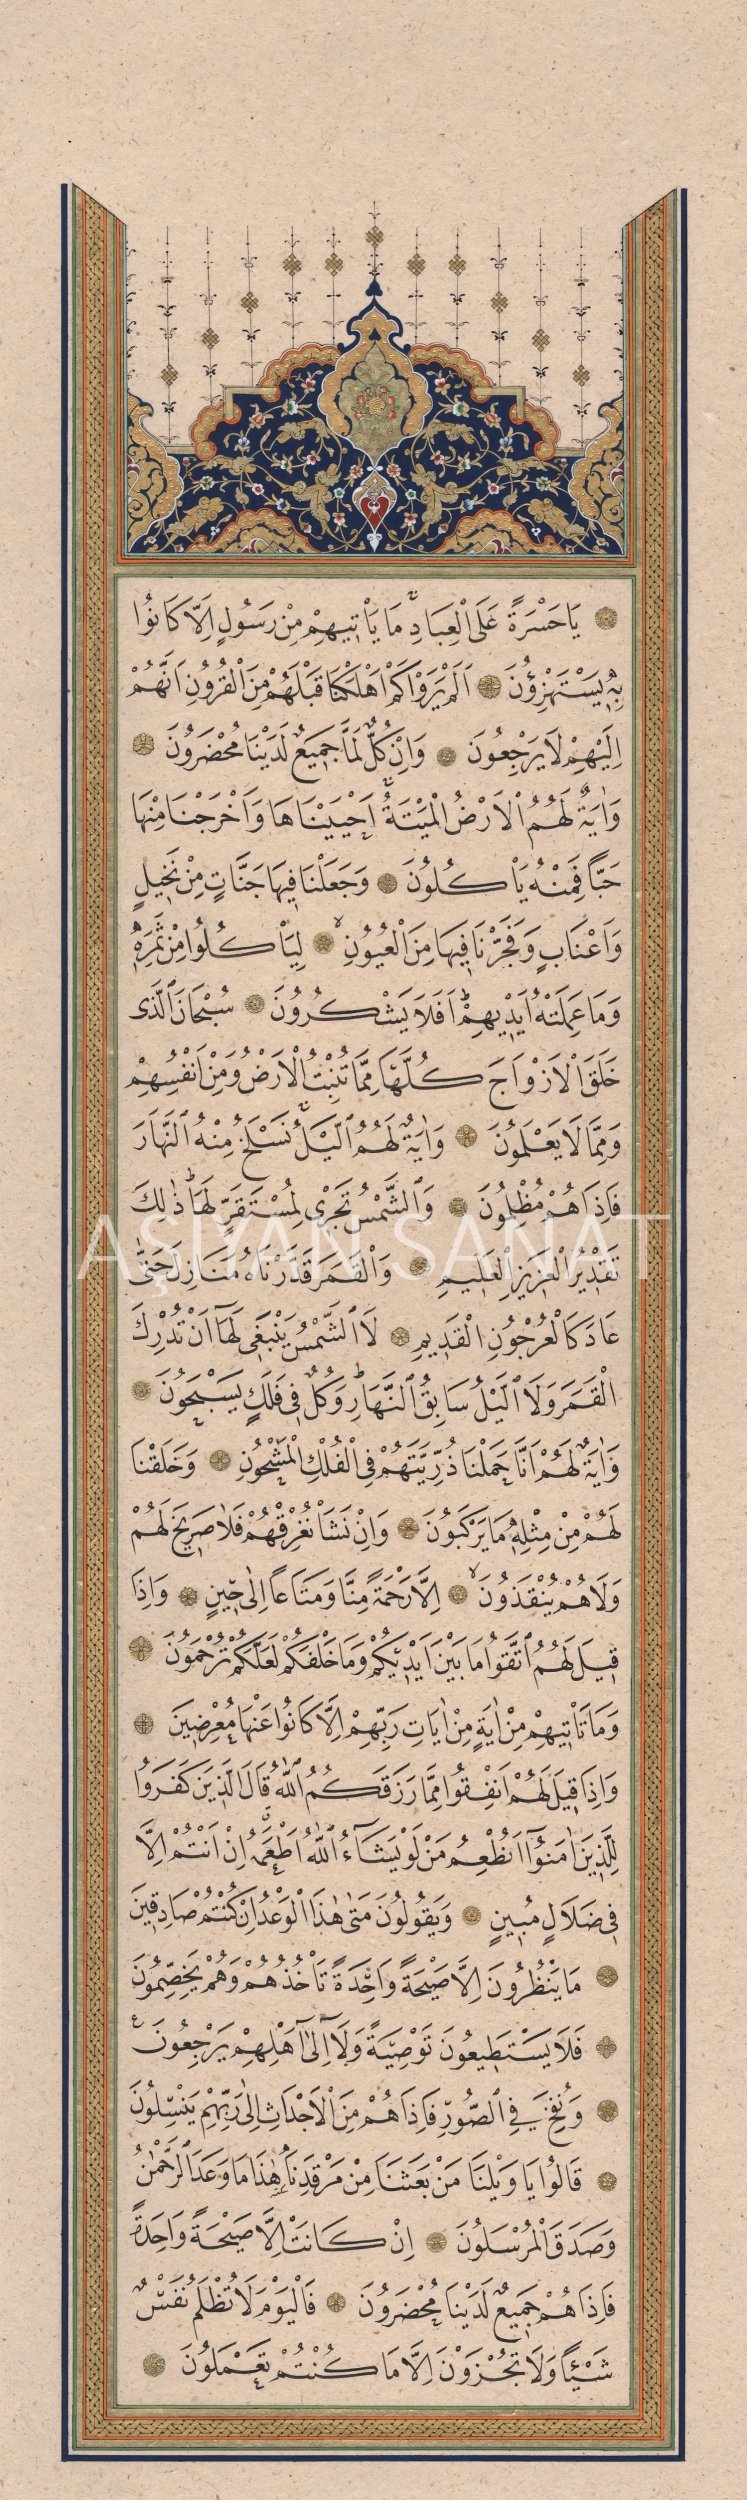 يَاحَسْرَةً عَلَى الْعِبَادِۚ مَا يَأْتِيهِمْ مِنْ رَسُولٍ اِلَّا كَانُوا
بِهِ يَسْتَهْزِؤُنَ اَلَمْ يَرَوْا كَمْ اَهْلَكْنَا قَبْلَهُمْ مِنَ الْقُرُونِ اَنَّهُمْ
اِلَيْهِمْ لَا يَرْجِعُونَ وَاِنْ كُلٌّ لَمَّا جَمِيعٌ لَدَيْنَا مُحْضَرُونَ
وَاٰيَةٌ لَهُمُ الْاَرْضُ الْمَيْتَةُۚ اَحْيَيْنَاهَا وَاَخْرَجْنَا مِنْهَا
حَبًّا فَمِنْهُ يَأْكُلُونَ وَجَعَلْنَا فِيهَا جَنَّاتٍ مِنْ نَخِيلٍ
وَاَعْنَابٍ وَفَجَّرْنَا فِيهَا مِنَ الْعُيُونِۙ لِيَأْكُلُوا مِنْ ثَمَرِهِ
وَمَا عَمِلَتْهُ اَيْدِيهِمْۜ اَفَلَا يَشْكُرُونَ سُبْحَانَ الَّذِى
خَلَقَ الْاَزْوَاجَ كُلَّهَا مِمَّا تُنْبِتُ الْاَرْضُ وَمِنْ اَنْفُسِهِمْ
وَمِمَّا لَا يَعْلَمُونَ وَاٰيَةٌ لَهُمُ الَّيْلُۚ نَسْلَخُ مِنْهُ النَّهَارَ
فَاِذَا هُمْ مُظْلِمُونَ وَالشَّمْسُ تَجْرِى لِمُسْتَقَرٍّ لَهَاۜ ذٰلِكَ
AŞİYAN SANAT
تَقْدِيرُ الْعَزِيزِ الْعَلِيمِ وَالْقَمَرَ قَدَّرْنَاهُ مَنَازِلَ حَتّٰى
عَادَ كَالْعُرْجُونِ الْقَدِيمِ لَا الشَّمْسُ يَنْبَغِى لَهَٓا اَنْ تُدْرِكَ
الْقَمَرَ وَلَا الَّيْلُ سَابِقُ النَّهَارِۜ وَكُلٌّ فِى فَلَكٍ يَسْبَحُونَ
وَاٰيَةٌ لَهُمْ اَنَّا حَمَلْنَا ذُرِّيَّتَهُمْ فِى الْفُلْكِ الْمَشْحُونِ وَخَلَقْنَا
لَهُمْ مِنْ مِثْلِهِ مَا يَرْكَبُونَ وَاِنْ نَشَأْ نُغْرِقْهُمْ فَلَا صَرِيخَ لَهُمْ
وَلَا هُمْ يُنْقَذُونَۙ اِلَّا رَحْمَةً مِنَّا وَمَتَاعًا اِلٰى حِينٍ وَاِذَا
قِيلَ لَهُمُ اتَّقُوا مَا بَيْنَ اَيْدِيكُمْ وَمَا خَلْفَكُمْ لَعَلَّكُمْ تُرْحَمُونَ
وَمَا تَأْتِيهِمْ مِنْ اٰيَةٍ مِنْ اٰيَاتِ رَبِّهِمْ اِلَّا كَانُوا عَنْهَا مُعْرِضِينَ
وَاِذَا قِيلَ لَهُمْ اَنْفِقُوا مِمَّا رَزَقَكُمُ اللّٰهُ قَالَ الَّذِينَ كَفَرُوا
لِلَّذِينَ اٰمَنُٓوا اَنُطْعِمُ مَنْ لَوْ يَشَٓاءُ اللّٰهُ اَطْعَمَهُ اِنْ اَنْتُمْ اِلَّا
فِى ضَلَالٍ مُبِينٍ وَيَقُولُونَ مَتٰى هٰذَا الْوَعْدُ اِنْ كُنْتُمْ صَادِقِينَ
مَا يَنْظُرُونَ اِلَّا صَيْحَةً وَاحِدَةً تَأْخُذُهُمْ وَهُمْ يَخِصِّمُونَ
فَلَا يَسْتَطِيعُونَ تَوْصِيَةً وَلَٓا اِلٰٓى اَهْلِهِمْ يَرْجِعُونَ ع
وَنُفِخَ فِى الصُّورِ فَاِذَا هُمْ مِنَ الْاَجْدَاثِ اِلٰى رَبِّهِمْ يَنْسِلُونَ
قَالُوا يَا وَيْلَنَا مَنْ بَعَثَنَا مِنْ مَرْقَدِنَا هٰذَا مَا وَعَدَ الرَّحْمٰنُ
وَصَدَقَ الْمُرْسَلُونَ اِنْ كَانَتْ اِلَّا صَيْحَةً وَاحِدَةً
فَاِذَا هُمْ جَمِيعٌ لَدَيْنَا مُحْضَرُونَ فَالْيَوْمَ لَا تُظْلَمُ نَفْسٌ
شَيْئًا وَلَا تُجْزَوْنَ اِلَّا مَا كُنْتُمْ تَعْمَلُونَ